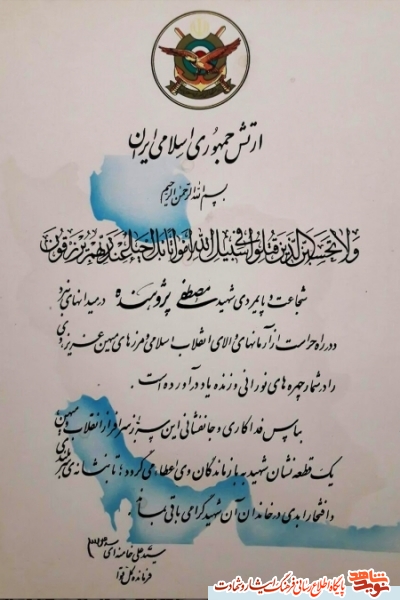 ارتش جمهوری اسلامی ایران
بسم الله الرحمن الرحیم
ولا تحسبن الذین قتلوا فی سبیل الله امواتا بل احیاء عند ربهم یرزقون
شجاعت و پایمردی شهید مصطفی پژوهنده در میدانهای نبرد
در راه حراست از آرمانهای والای انقلاب اسلامی و مرزهای میهن عزیز وی
را در شمار چهره های نورانی و زنده یاد درآورده است.
بپاس فداکاری و جانفشانی این سرباز سرافراز انقلاب و میهن
یک قطعه نشان شهید به بازماندگان وی اعطاء می گردد تا نشانه سربلندی
و افتخار ابدی در خاندان آن شهید گرامی باقی بماند
سید علی خامنه ای
فرمانده کل قوا
نوید شاهد
پایگاه اطلاع رسانی فرهنگ ایثار و شهادت